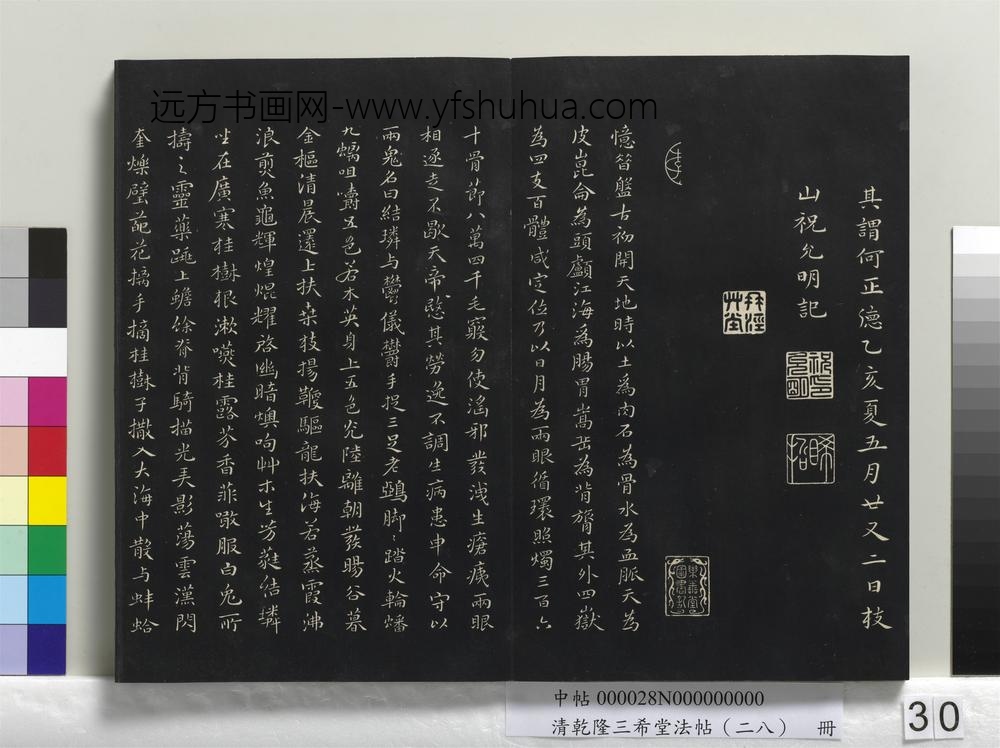 远方书画网-www.yfshuhua.com
其謂何正德乙亥夏五月廿又二日枝
山祝允明記
憶昔盤古初開天地時以土為肉石為骨水為血脈天為
皮崑侖為頭顱江海為腸胃嵩岳為背膂其外四嶽
為四支百體咸定位乃以日月為兩眼循環照燭三百六
十骨節八萬四千毛竅勿使淫邪發洩生瘡痍兩眼
相逐走不歇天帝愍其勞逸不調生病患申命守以
兩鬼名曰結璘与鬱儀鬱手捉三足老鵶脚踏火輪蟠
九螭咀嚼五色若木英身上五色光陸離朝發暘谷暮
金樞清晨還上扶桑枝揚鞭驅龍扶海若蒸霞沸
浪煎魚龜輝煌焜耀啓幽暗燠呴艸木生芳蕤結璘
坐在廣寒桂樹根漱嚥桂露芬香菲噉服白兔所
擣之靈藥跳上蟾蜍脊背騎描光弄影蕩雲漢閃
奎爍璧葩花摛手摘桂樹子撒入大海中散与蚌蛤
中帖 000028N000000000
清乾隆三希堂法帖（二八） 冊
30